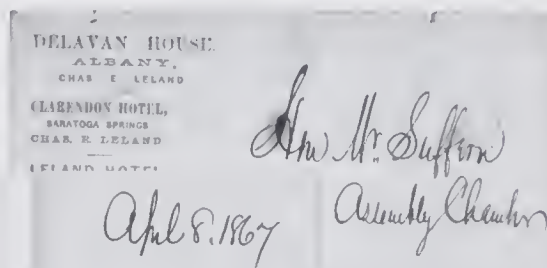 DELAVAN HOUSE
ALBANY,
CHAS E LELAND
CLARENDON HOTEL,
SARATOGA SPRINGS
CHAS. E. LELAND
LELAND HOTEL
Hon Mr. Suffern
Assembly Chamber
April 8. 1867